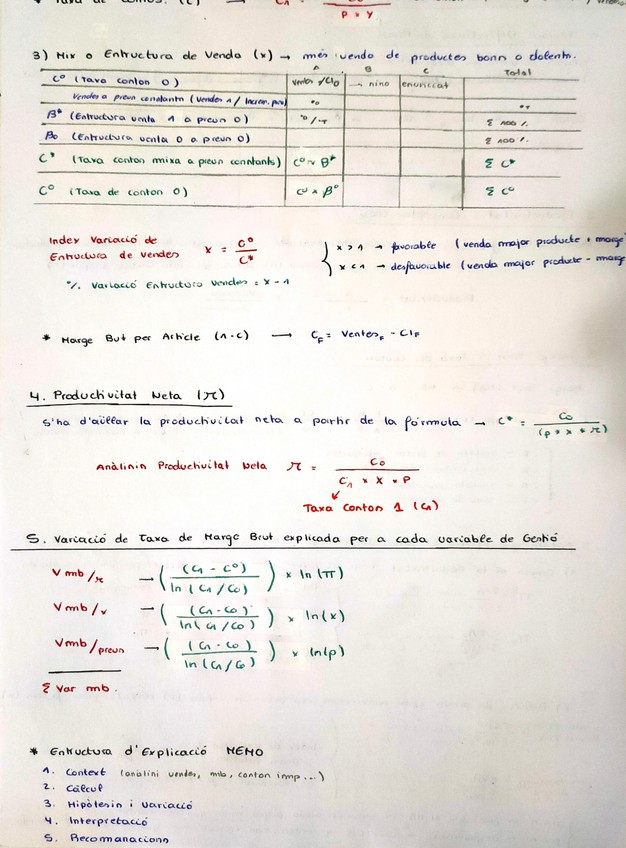 C₁ =
P × Y
3) Mix o Estructura de Venda (x) → més vendo de productes bons o dolents.
A B C Total
C⁰ (Taxa costos 0) Ventes / CI₀ → nino enunciat
Vendes a preus constants (Vendes 1 / Increm. preu)
B* (Estructura venta 1 a preus 0) Σ 100 %
B₀ (Estructura venta 0 a preus 0) Σ 100 %
C* (Taxa costos mixa a preus constants) C⁰ × B* Σ C*
C⁰ (Taxa de costos 0) C⁰ × β⁰ Σ C⁰
Index Variació de
Estructura de Vendes x = C⁰ / C*
x > 1 → favorable (venda major producte + marge
x < 1 → desfavorable (venda major producte - marge
% Variació Estructura Vendes = x - 1
* Marge Brut per Article (1-C) → C_F = Ventes_F - CI_F
4. Productivitat Neta (π)
S'ha d'aïllar la productivitat neta a partir de la fórmula → C* = C₀ / (p * x * π)
Anàlisis Productivitat Neta π = C₀ / C₁ × X × P
Taxa Costos 1 (C₁)
5. Variació de Taxa de Marge Brut explicada per a cada variable de Gestió
V mb/π → ( (C₁ - C⁰) / ln (C₁ / C₀) ) × ln (π)
V mb/x → ( (C₁ - C₀) / ln (C₁ / C₀) ) × ln (x)
V mb/preus → ( (C₁ - C₀) / ln (C₁ / C₀) ) × ln (p)
Σ Var mb.
* Estructura d'Explicació MEMO
1. Context (anàlisi vendes, mb, costos imp...)
2. Càlcul
3. Hipòtesis i variació
4. Interpretació
5. Recomanacions